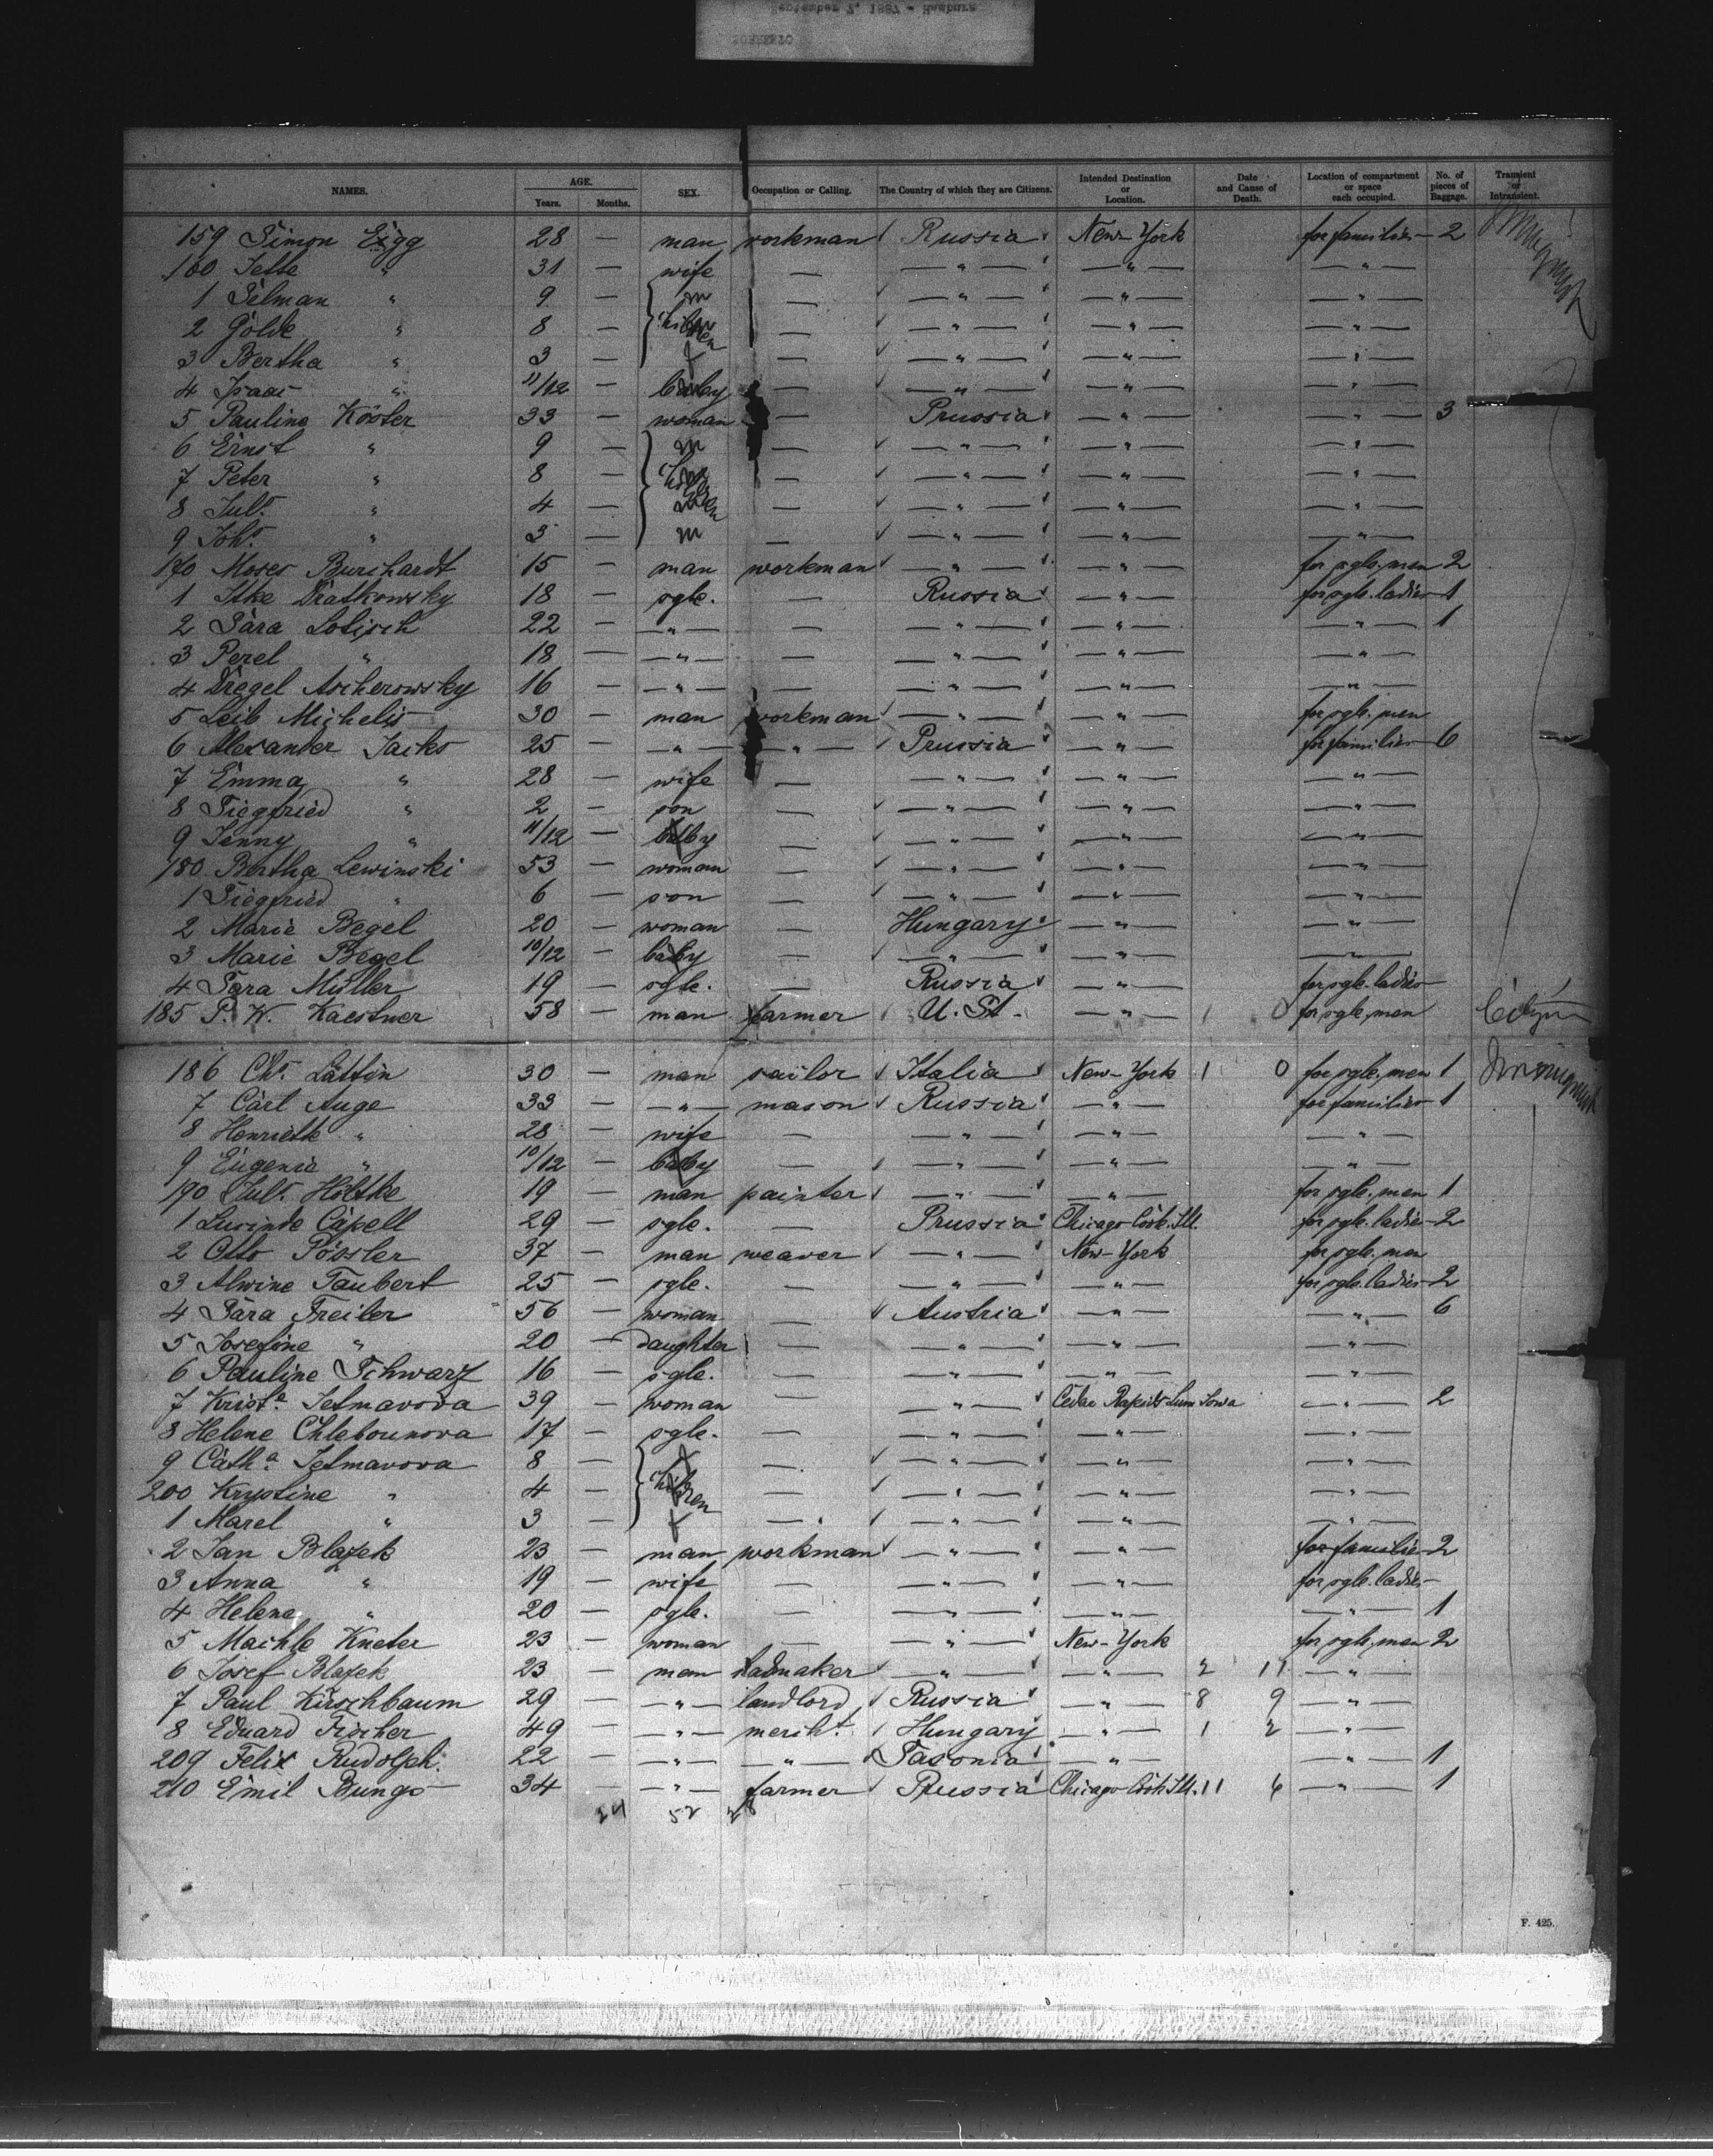 September 7, 1887 - Hamburg
SORRENTO
NAMES. AGE. Years. Months. SEX. Occupation or Calling. The Country of which they are Citizens. Intended Destination or Location. Date and Cause of Death. Location of compartment or space each occupied. No. of pieces of Baggage. Transient or Intransient.
159 Simon Eigg 28 — man workman Russia New-York for families 2
160 Jette " 31 — wife — — " — — " — — " —
1 Selman " 9 — m — — " — — " — — " —
2 Golde " 8 — children — — " — — " — — " —
3 Bertha " 3 — f — — " — — " — — " —
4 Isaac " 11/12 — baby — — " — — " — — " —
5 Pauline Köster 33 — woman — Prussia — " — — " — 3
6 Ernst " 9 — m — — " — — " — — " —
7 Peter " 8 — children — — " — — " — — " —
8 Juls. " 4 — m — — " — — " — — " —
9 Johs. " 3 — m — — " — — " — — " —
170 Moses Burchardt 15 — man workman — " — — " — for sgle. men 2
1 Itke Dratkowsky 18 — sgle. — Russia — " — for sgle. ladies 1
2 Sara Lotisch 22 — — " — — — " — — " — — " — 1
3 Perel " 18 — — " — — — " — — " — — " —
4 Dregel Ascherowsky 16 — — " — — — " — — " — — " —
5 Leib Michelis 30 — man workman — " — — " — for sgle. men
6 Alexander Jacks 25 — — " — — " — Prussia — " — for families 6
7 Emma " 28 — wife — — " — — " — — " —
8 Siegfried " 2 — son — " — — " — — " —
9 Jenny " 11/12 — baby — — " — — " — — " —
180 Bertha Lewinski 53 — woman — — " — — " — — " —
1 Siegfried " 6 — son — — " — — " — — " —
2 Marie Begel 20 — woman — Hungary — " — — " —
3 Marie Begel 10/12 — baby — — " — — " — — " —
4 Sara Müller 19 — sgle. — Russia — " — for sgle. ladies
185 P. W. Kaestner 58 — man farmer U. St. — " — 1 0 for sgle. men Citizen
186 Chs. Lattin 30 — man sailor Italia New-York 1 0 for sgle. men 1
7 Carl Auge 33 — — " — mason Russia — " — for families 1
8 Henriette " 28 — wife — — " — — " — — " —
9 Eugenie " 10/12 — baby — — " — — " — — " —
190 Juls. Höltke 19 — man painter — " — — " — for sgle. men 1
1 Lucinde Capell 29 — sgle. — Prussia Chicago Cook. Ill. for sgle. ladies 2
2 Otto Pössler 37 — man weaver — " — New-York for sgle. men
3 Alwine Taubert 25 — sgle. — — " — — " — for sgle. ladies 2
4 Sara Freiler 56 — woman — Austria — " — — " — 6
5 Josefine " 20 — daughter — — " — — " — — " —
6 Pauline Schwarz 16 — sgle. — — " — — " — — " —
7 Krista. Jelmavova 39 — woman — — " — Cedar Rapids Linn Iowa — " — 2
8 Helene Chlebounova 17 — sgle. — — " — — " — — " —
9 Catha. Jelmavova 8 — f — — " — — " — — " —
200 Krystine " 4 — children — — " — — " — — " —
1 Marel " 3 — f — — " — — " — — " —
2 Jan Blazek 23 — man workman — " — — " — for families 2
3 Anna " 19 — wife — — " — — " — for sgle. ladies
4 Helene " 20 — sgle. — — " — — " — — " — 1
5 Machle Kneter 23 — woman — — " — New-York for sgle. men 2
6 Josef Blazek 23 — man — " — — " — 2 11 — " —
7 Paul Kirschbaum 29 — — " — landlord Russia — " — 8 9 — " —
8 Eduard Fischer 49 — — " — mercht. Hungary — " — 1 2 — " —
209 Felix Rudolph. 22 — — " — — " — Saxonia — " — — " — 1
210 Emil Bunge 34 — — " — farmer Prussia Chicago Cook Ill. 11 6 — " — 1
24 52 28
F. 425.